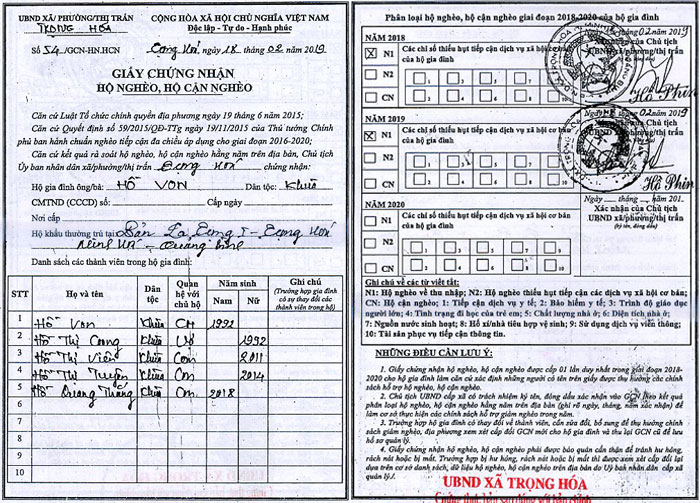 UBND XÃ/ PHƯỜNG/THỊ TRẤN
TRỌNG HÓA
CỘNG HÒA XÃ HỘI CHỦ NGHĨA VIỆT NAM
Độc lập - Tự do - Hạnh phúc
Số 54./GCN-HN.HCN
ngày 18 tháng 02 năm 2019
GIẤY CHỨNG NHẬN
HỘ NGHÈO, HỘ CẬN NGHÈO
Căn cứ Luật Tổ chức chính quyền địa phương ngày 19 tháng 6 năm 2015;
Căn cứ Quyết định số 59/2015/QĐ-TTg ngày 19/11/2015 của Thủ tướng Chính
phủ ban hành chuẩn nghèo tiếp cận đa chiều áp dụng cho giai đoạn 2016-2020;
Căn cứ kết quả rà soát hộ nghèo, hộ cận nghèo hằng năm trên địa bàn, Chủ tịch
Ủy ban nhân dân xã/phường/thị trấn chứng nhận:
Hộ gia đình ông/bà: HỒ VON Dân tộc: Khùa
CMTND (CCCD) số: Cấp ngày
Nơi cấp
Hộ khẩu thường trú tại: Bản
Minh Hoá - Quảng Bình
Danh sách các thành viên trong hộ gia đình:
STT Họ và tên Dân tộc Quan hệ với chủ hộ Năm sinh Nam Nữ Ghi chú (Trường hợp gia đình có sự thay đổi các thành viên trong hộ)
1 Hồ Von Khùa CH 1992
2 Hồ Thị Khùa Vợ 1992
3 Hồ Thị Viên Khùa Con 2011
4 Hồ Thị Tuyên Khùa Con 2014
5 Hồ Thắng Khùa Con 2018
6
7
8
9
10
Phân loại hộ nghèo, hộ cận nghèo giai đoạn 2018-2020 của hộ gia đình
NĂM 2018
X N1
N2
CN
Các chỉ số thiếu hụt tiếp cận dịch vụ xã hội cơ bản
của hộ gia đình
1 2 3 4 5
6 7 8 9 10
02 năm 2019
của Chủ tịch
UBND xã/phường/thị trấn
Hồ Phin
NĂM 2019
X N1
N2
CN
Các chỉ số thiếu hụt tiếp cận dịch vụ xã hội cơ bản
của hộ gia đình
1 2 3 4 5
6 7 8 9 10
02 năm 2019
của Chủ tịch
UBND xã/phường/thị trấn
Hồ Phin
NĂM 2020
N1
N2
CN
Các chỉ số thiếu hụt tiếp cận dịch vụ xã hội cơ bản
của hộ gia đình
1 2 3 4 5
6 7 8 9 10
Ngày tháng năm 201
Xác nhận của Chủ tịch
UBND xã/phường/thị trấn
(ký tên, đóng dấu)
Ghi chú về các từ viết tắt:
N1: Hộ nghèo về thu nhập; N2: Hộ nghèo thiếu hụt tiếp cận các dịch vụ xã hội cơ bản;
CN: Hộ cận nghèo; 1: Tiếp cận dịch vụ y tế; 2: Bảo hiểm y tế; 3: Trình độ giáo dục
người lớn; 4: Tình trạng đi học của trẻ em; 5: Chất lượng nhà ở; 6: Diện tích nhà ở;
7: Nguồn nước sinh hoạt; 8: Hố xí/nhà tiêu hợp vệ sinh; 9: Sử dụng dịch vụ viễn thông;
10: Tài sản phục vụ tiếp cận thông tin.
NHỮNG ĐIỀU CẦN LƯU Ý:
1. Giấy chứng nhận hộ nghèo, hộ cận nghèo được cấp 01 lần duy nhất trong giai đoạn 2018-
2020 cho hộ gia đình làm căn cứ xác định những người có tên trên giấy được thụ hưởng các chính
sách hỗ trợ hộ nghèo, hộ cận nghèo.
2. Chủ tịch UBND cấp xã có trách nhiệm ký tên, đóng dấu xác nhận vào GCN theo kết quả
phân loại hộ nghèo, hộ cận nghèo hằng năm trên địa bàn (ghi rõ ngày, tháng, năm xác nhận) để
làm cơ sở thực hiện các chính sách hỗ trợ giảm nghèo trong năm.
3. Trường hợp hộ có thay đổi về thành viên, cần sửa đổi, bổ sung để thụ hưởng chính
sách giảm nghèo, địa phương xem xét cấp đổi GCN mới cho hộ gia đình và thu lại GCN cũ để lưu
hồ sơ quản lý.
4. Giấy chứng nhận hộ nghèo, hộ cận nghèo phải được bảo quản cẩn thận để tránh hư hỏng,
rách nát hoặc bị mất. Trường hợp bị hư hỏng, rách nát hoặc bị mất thì được xem xét cấp đổi lại
dựa trên cơ sở danh sách, dữ liệu hộ nghèo, hộ cận nghèo trên địa bàn do Uỷ ban nhân dân cấp xã
quản lý./.
UBND XÃ TRỌNG HÓA